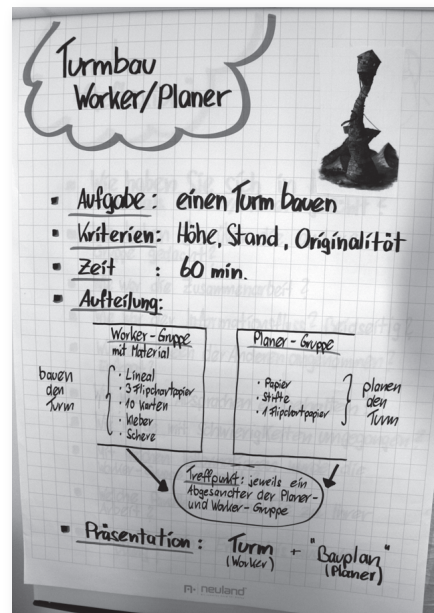 Turmbau
Worker/Planer
▪ Aufgabe: einen Turm bauen
▪ Kriterien: Höhe, Stand, Originalität
▪ Zeit : 60 min.
▪ Aufteilung:
Worker-Gruppe
mit Material
· Lineal
· 3 Flipchartpapier
· 10 Karten
· Kleber
· Schere
bauen
den
Turm
Planer-Gruppe
· Papier
· Stifte
· 1 Flipchartpapier
planen
den
Turm
Treffpunkt: jeweils ein
Abgesandter der Planer-
und Worker-Gruppe
▪ Präsentation: Turm + "Bauplan"
(Worker) (Planer)
neuland